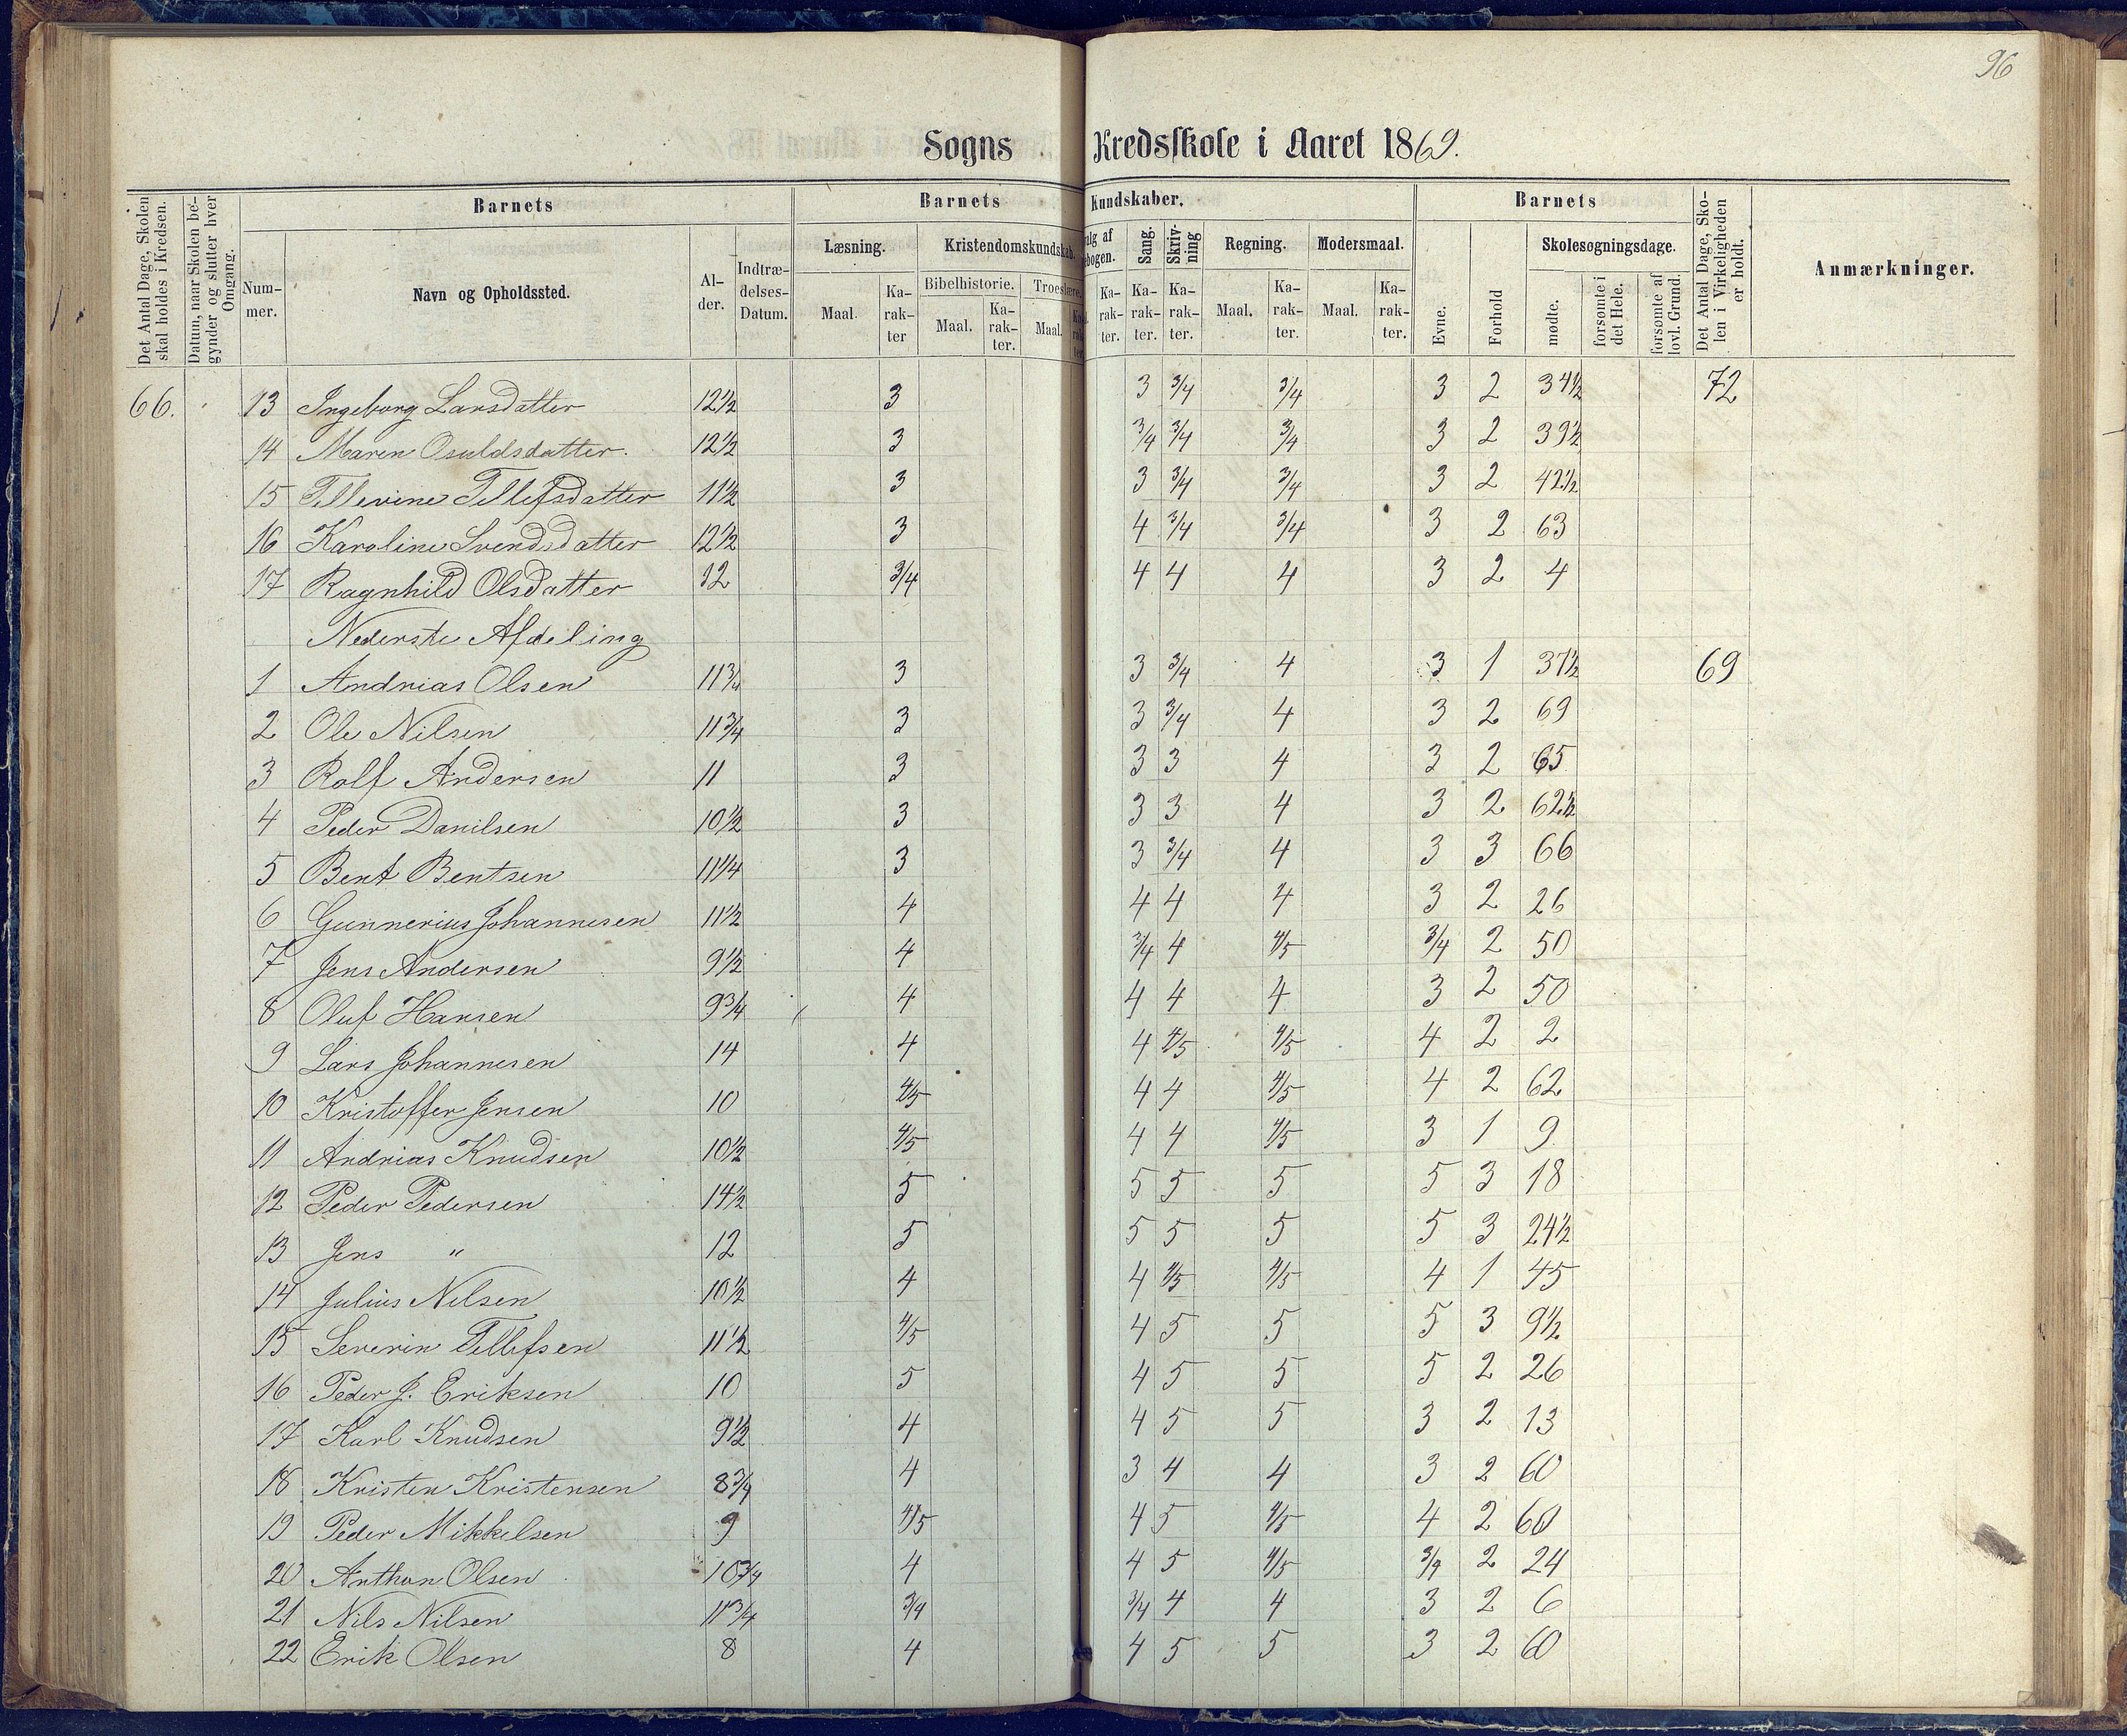 96
Sogns Kredsskole i Aaret 1869.
Det Antal Dage, Skolen skal holdes i Kredsen.
Datum, naar Skolen begynder og slutter hver Omgang.
Barnets
Nummer.
Navn og Opholdssted.
Alder.
Indtrædelses-Datum.
Barnets Kundskaber.
Læsning.
Maal.
Karakter
Kristendomskundskab.
Bibelhistorie.
Maal.
Karakter.
Troeslære.
Maal.
Karakter.
Sang.
Karakter.
Skrivning
Karakter.
Regning.
Maal.
Karakter.
Modersmaal.
Maal.
Karakter.
Barnets
Evne.
Forhold
Skolesøgningsdage.
mødte.
forsømte i det Hele.
forsømte af lovl. Grund.
Det Antal Dage, Skolen i Virkeligheden er holdt.
Anmærkninger.
66. 13 Ingeborg Larsdatter 12½ 3 3 3/4 3/4 3 2 34½ 72
14 Maren Osuldsdatter. 12½ 3 3/4 3/4 3/4 3 2 39½
15 Tellevine Tellefsdatter 11½ 3 3 3/4 3/4 3 2 42½
16 Karoline Svendsdatter 12½ 3 4 3/4 3/4 3 2 63
17 Ragnhild Olsdatter 12 3/4 4 4 4 3 2 4
Nederste Afdeling
1 Andrias Olsen 11¾ 3 3 3/4 4 3 1 37½ 69
2 Ole Nilsen 11¾ 3 3 3/4 4 3 2 69
3 Rolf Andersen 11 3 3 3 4 3 2 65
4 Peder Danilsen 10½ 3 3 3 4 3 2 62½
5 Bent Bentsen 11¼ 3 3 3/4 4 3 3 66
6 Gunnerius Johannesen 11½ 4 4 4 4 3 2 26
7 Jens Andersen 9½ 4 3/4 4 4/5 3/4 2 50
8 Oluf Hansen 9¾ 4 4 4 4 3 2 50
9 Lars Johannesen 14 4 4 4/5 4/5 4 2 2
10 Kristoffer Jensen 10 4/5 4 4 4/5 4 2 62
11 Andrias Knudsen 10½ 4/5 4 4 4/5 3 1 9
12 Peder Pedersen 14½ 5 5 5 5 5 3 18
13 Jens " 12 5 5 5 5 5 3 24½
14 Julius Nilsen 10½ 4 4 4/5 4/5 4 1 45
15 Severin Tellefsen 11½ 4/5 4 5 5 5 3 9½
16 Peder J. Eriksen 10 5 4 5 5 5 2 26
17 Karl Knudsen 9½ 4 4 5 5 3 2 13
18 Kristen Kristensen 8¾ 4 3 4 4 3 2 60
19 Peder Mikkelsen 9 4/5 4 5 4/5 4 2 60
20 Anthon Olsen 10¾ 4 4 5 4/5 3/4 2 24
21 Nils Nilsen 11¾ 3/4 3/4 4 4 3 2 6
22 Erik Olsen 8 4 4 5 5 3 2 60